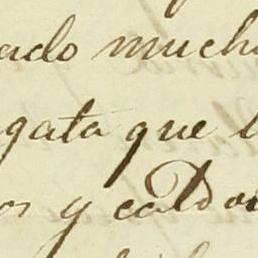 ado much
gata que l
os y caldo